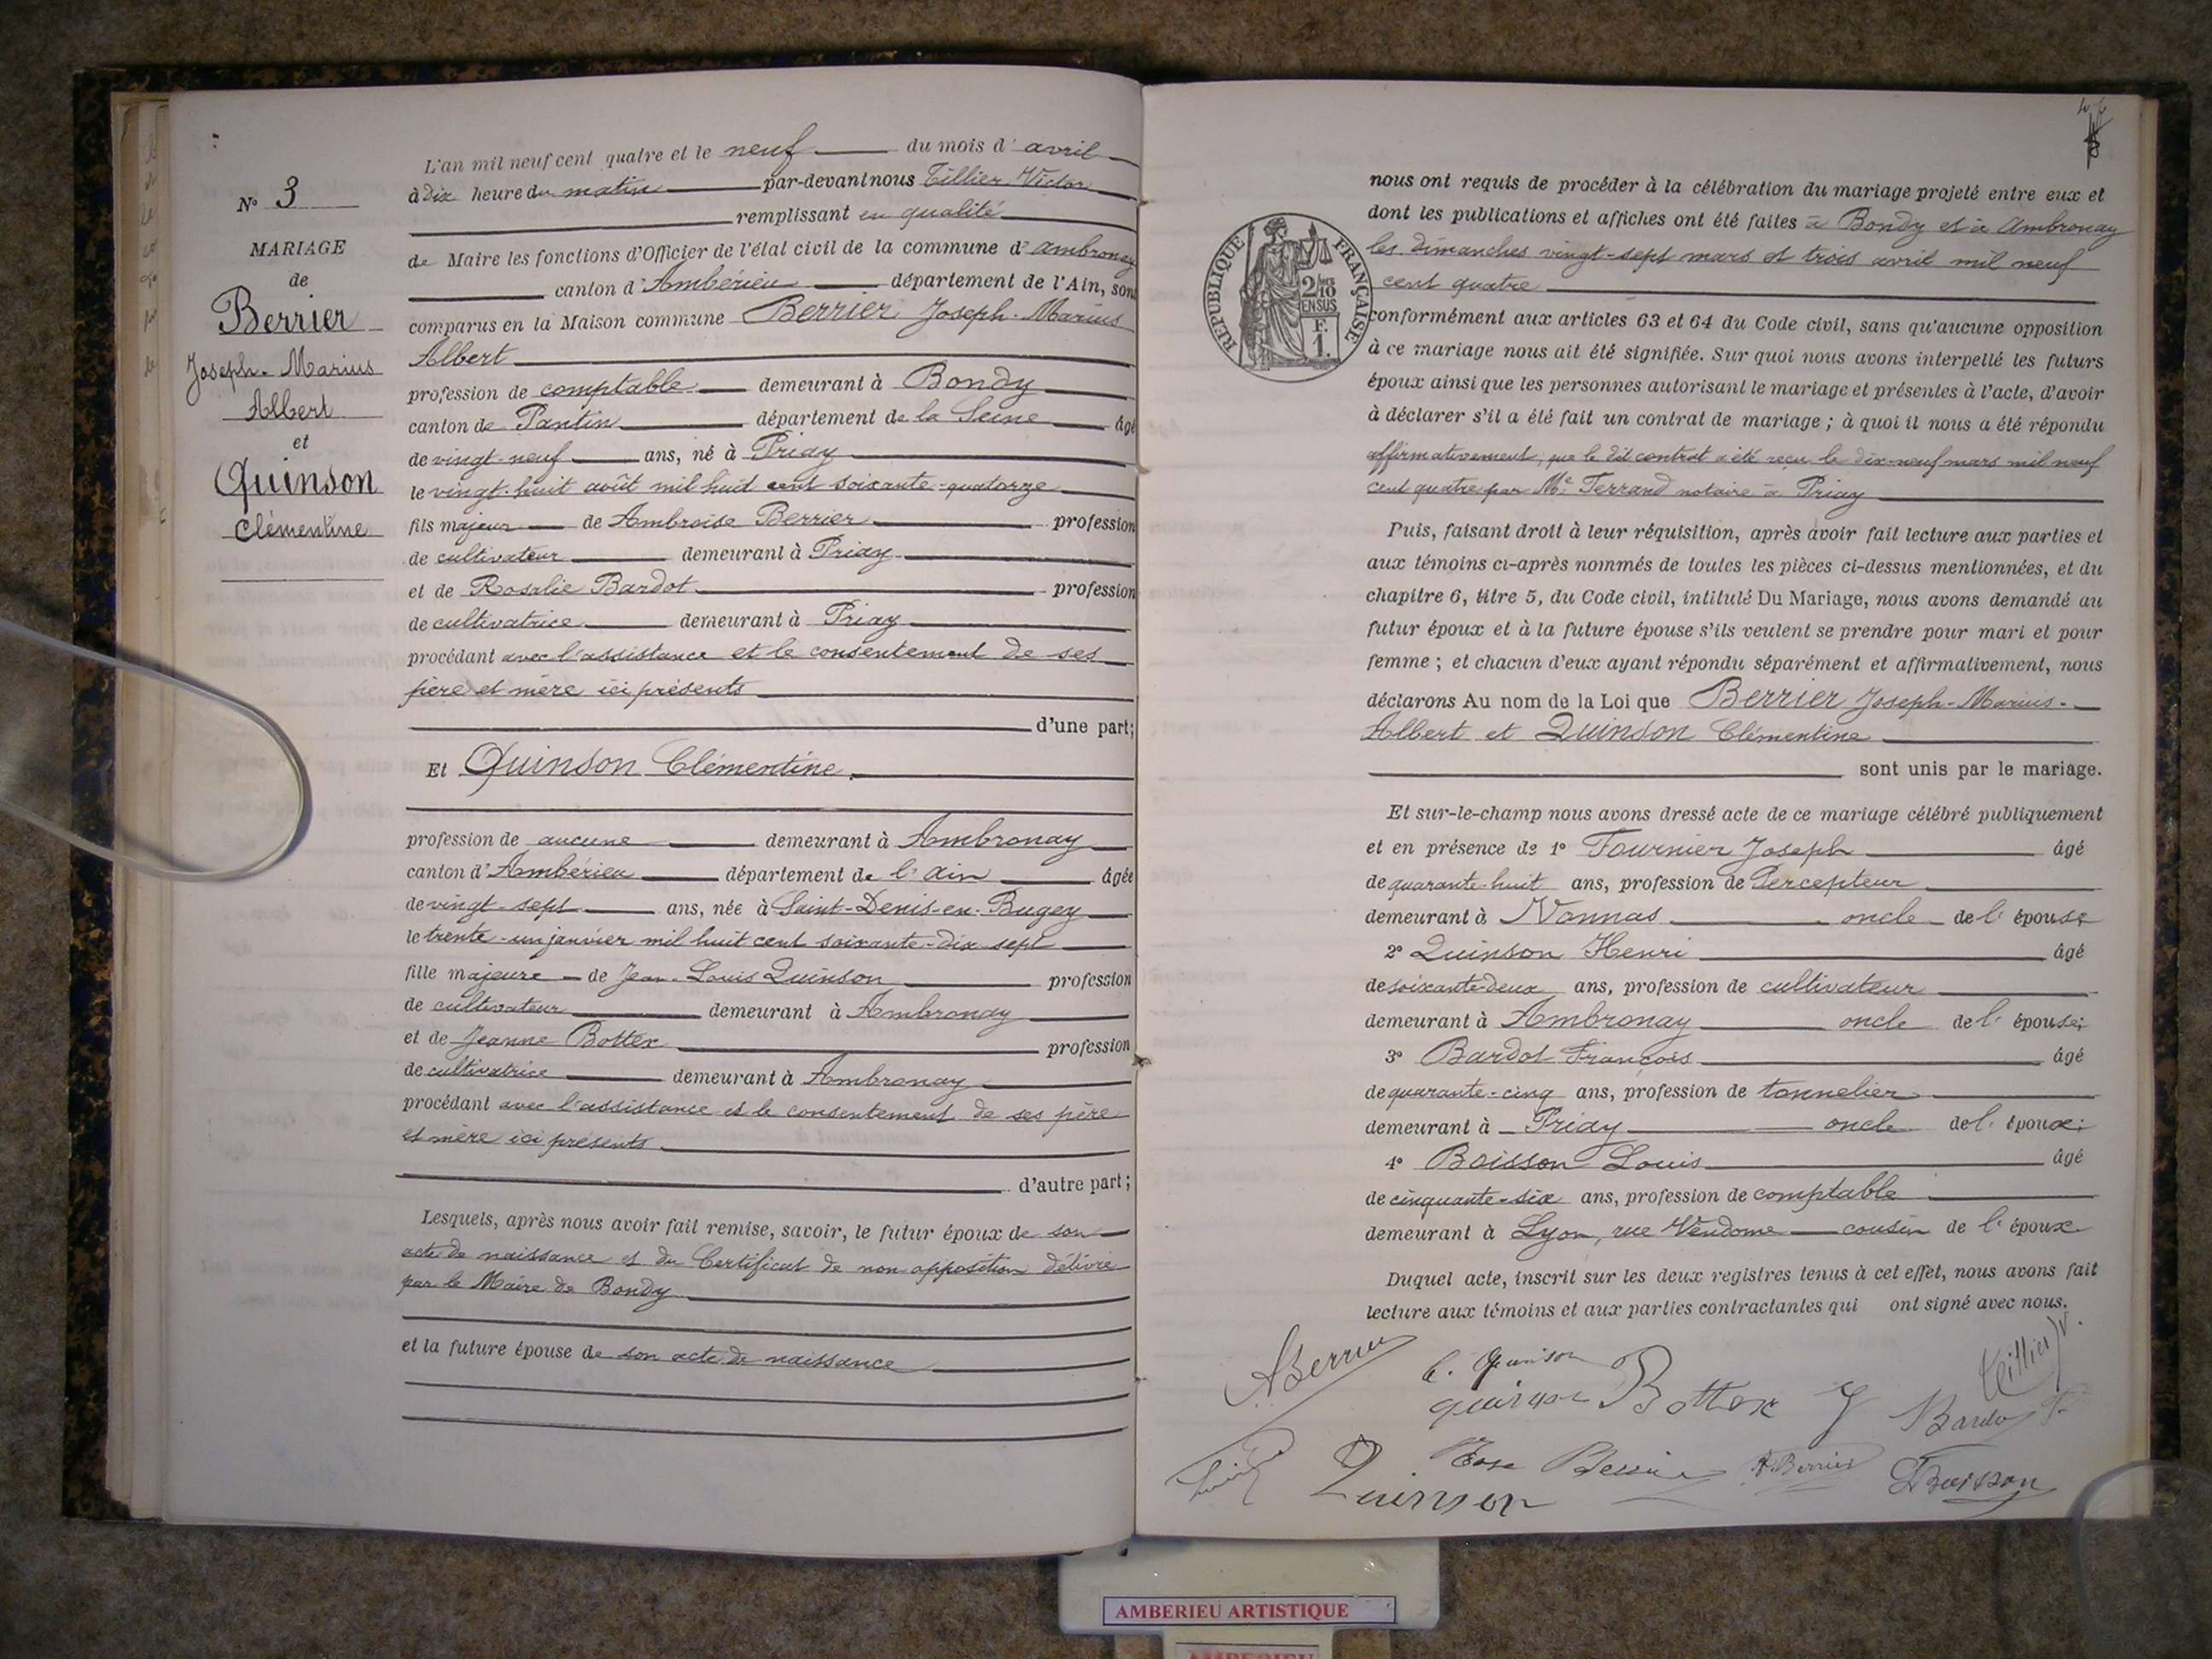 N° 3
MARIAGE
de
Berrier
Joseph-Marius
Albert
et
Quinson
Clémentine
L'an mil neuf cent quatre et le neuf du mois d'avril
à dix heure du matin par-devant nous Tillier Victor
remplissant en qualité
de Maire les fonctions d'Officier de l'état civil de la commune d'Ambronay
canton d'Ambérieu département de l'Ain, sont
comparus en la Maison commune Berrier Joseph-Marius
Albert
profession de comptable demeurant à Bondy
canton de Pantin département de la Seine âgé
de vingt-neuf ans, né à Priay
le vingt-huit août mil huit cent soixante-quatorze
fils majeur de Ambroise Berrier profession
de cultivateur demeurant à Priay
et de Rosalie Bardot profession
de cultivatrice demeurant à Priay
procédant avec l'assistance et le consentement de ses
père et mère ici présents
d'une part;
Et Quinson Clémentine
profession de aucune demeurant à Ambronay
canton d'Ambérieu département de l'Ain âgée
de vingt-sept ans, née à Saint-Denis-en-Bugey
le trente-un janvier mil huit cent soixante-dix sept
fille majeure de Jean-Louis Quinson profession
de cultivateur demeurant à Ambronay
et de Jeanne Bottex profession
de cultivatrice demeurant à Ambronay
procédant avec l'assistance et le consentement de ses père
et mère ici présents
d'autre part;
Lesquels, après nous avoir fait remise, savoir, le futur époux de son
acte de naissance et du Certificat de non opposition délivré
par le Maire de Bondy
et la future épouse de son acte de naissance
nous ont requis de procéder à la célébration du mariage projeté entre eux et
dont les publications et affiches ont été faites à Bondy et à Ambronay
les dimanches vingt-sept mars et trois avril mil neuf
cent quatre
conformément aux articles 63 et 64 du Code civil, sans qu'aucune opposition
à ce mariage nous ait été signifiée. Sur quoi nous avons interpellé les futurs
époux ainsi que les personnes autorisant le mariage et présentes à l'acte, d'avoir
à déclarer s'il a été fait un contrat de mariage; à quoi il nous a été répondu
affirmativement, que le dit contrat a été reçu le dix-neuf mars mil neuf
cent quatre par Me Ferrand notaire à Priay
Puis, faisant droit à leur réquisition, après avoir fait lecture aux parties et
aux témoins ci-après nommés de toutes les pièces ci-dessus mentionnées, et du
chapitre 6, titre 5, du Code civil, intitulé Du Mariage, nous avons demandé au
futur époux et à la future épouse s'ils veulent se prendre pour mari et pour
femme; et chacun d'eux ayant répondu séparément et affirmativement, nous
déclarons Au nom de la Loi que Berrier Joseph-Marius-
Albert et Quinson Clémentine
sont unis par le mariage.
Et sur-le-champ nous avons dressé acte de ce mariage célébré publiquement
et en présence de 1° Fournier Joseph âgé
de quarante-huit ans, profession de Percepteur
demeurant à Vonnas oncle de l'épouse;
2° Quinson Henri âgé
de soixante-deux ans, profession de cultivateur
demeurant à Ambronay oncle de l'épouse;
3° Bardot François âgé
de quarante-cinq ans, profession de tonnelier
demeurant à Priay oncle de l'époux;
4° Boisson Louis âgé
de cinquante-six ans, profession de comptable
demeurant à Lyon, rue Vendome cousin de l'époux
Duquel acte, inscrit sur les deux registres tenus à cet effet, nous avons fait
lecture aux témoins et aux parties contractantes qui ont signé avec nous.
RÉPUBLIQUE FRANÇAISE
2/10 EN SUS
F.
1.
ABerrier
C. Quinson
Tillier V.
quinson Bottex J
Bardot F.
Rose Berrier
A. Berrier
LBoisson
Quinson
AMBERIEU ARTISTIQUE
AMBERIEU